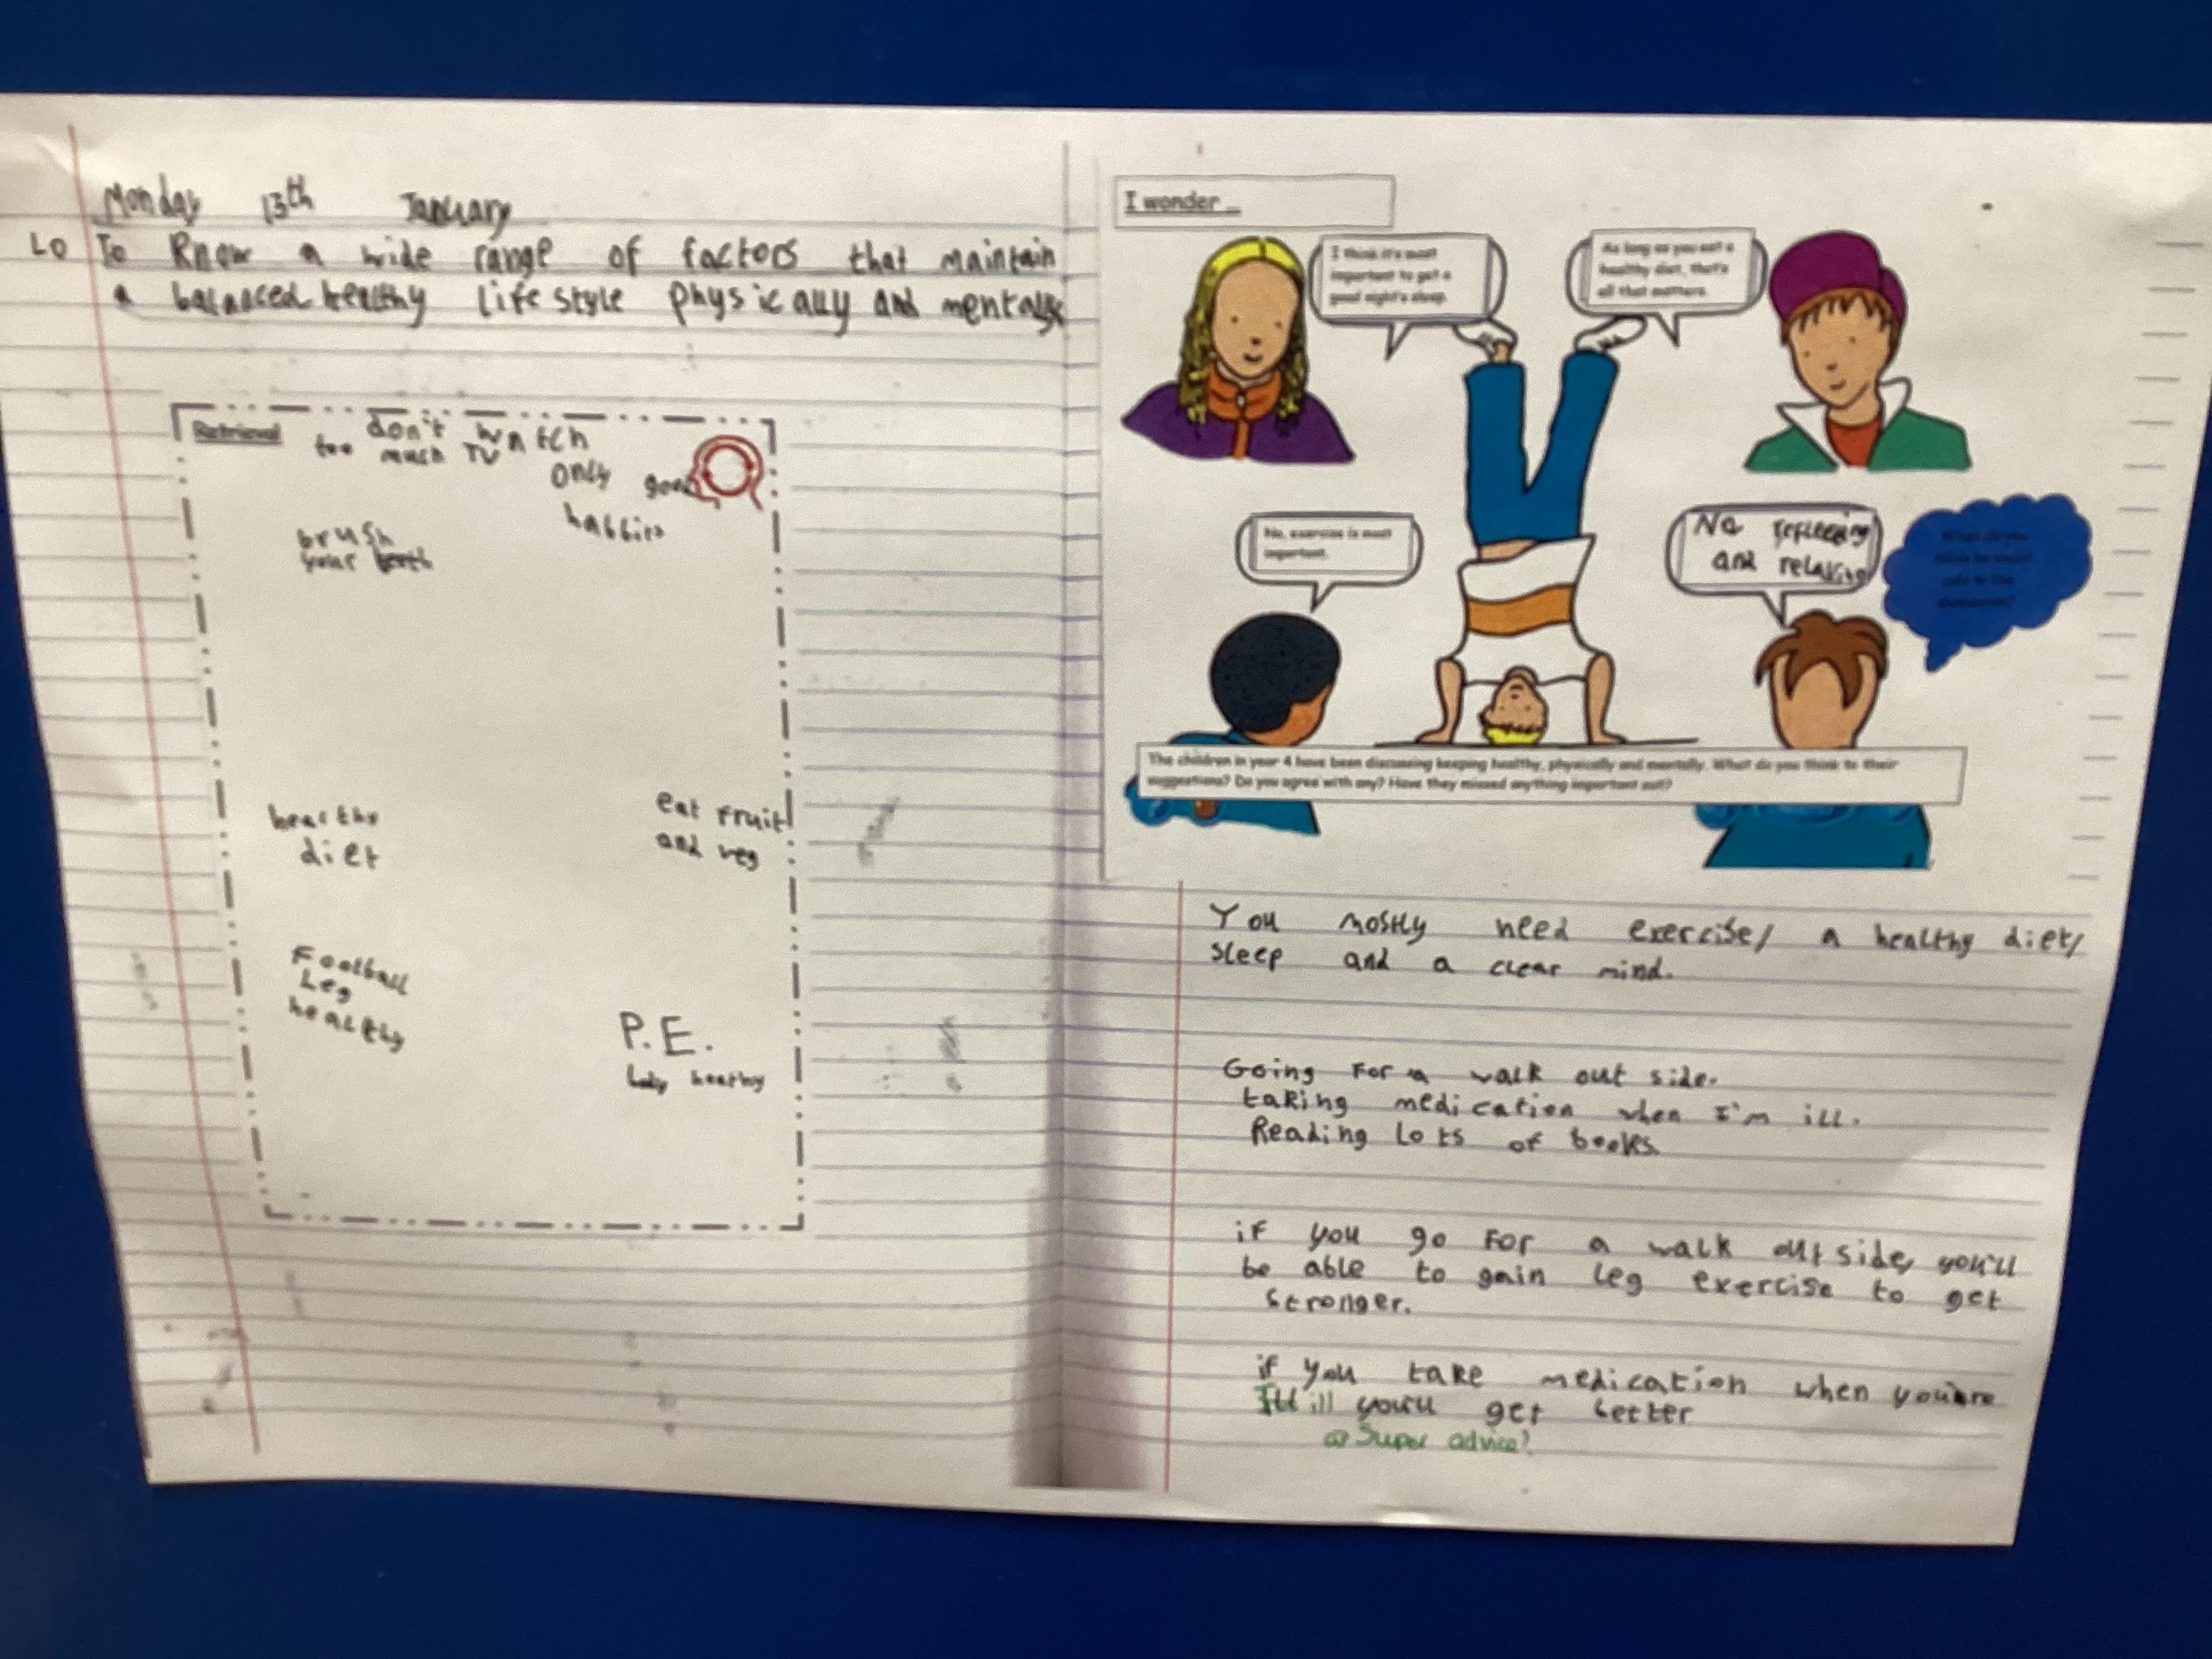 Monday 13th January
LO To Know a wide range of factors that maintain
a balanced healthy life style physically and mentally
Retrieval
don't watch
too much TV
only good
habbits
brush
your teeth
healthy
diet
eat fruit
and veg
Football
Leg
healthy
P.E.
healthy
I wonder ...
I think it's most
important to get a
good night's sleep.
As long as you eat a
healthy diet, that's
all that matters.
No, exercise is most
important.
No reflecting
and relaxing
What do you
think he could
add to the
discussion?
The children in year 4 have been discussing keeping healthy, physically and mentally. What do you think to their
suggestions? Do you agree with any? Have they missed anything important out?
You mostly need exercise, a healthy diet,
sleep and a clear mind.
Going For a walk out side.
taking medication when I'm ill.
Reading Lots of books.
if you go For a walk out side, you'll
be able to gain leg exercise to get
stronger.
if you take medication when you're
ill you'll get better
Super advice!